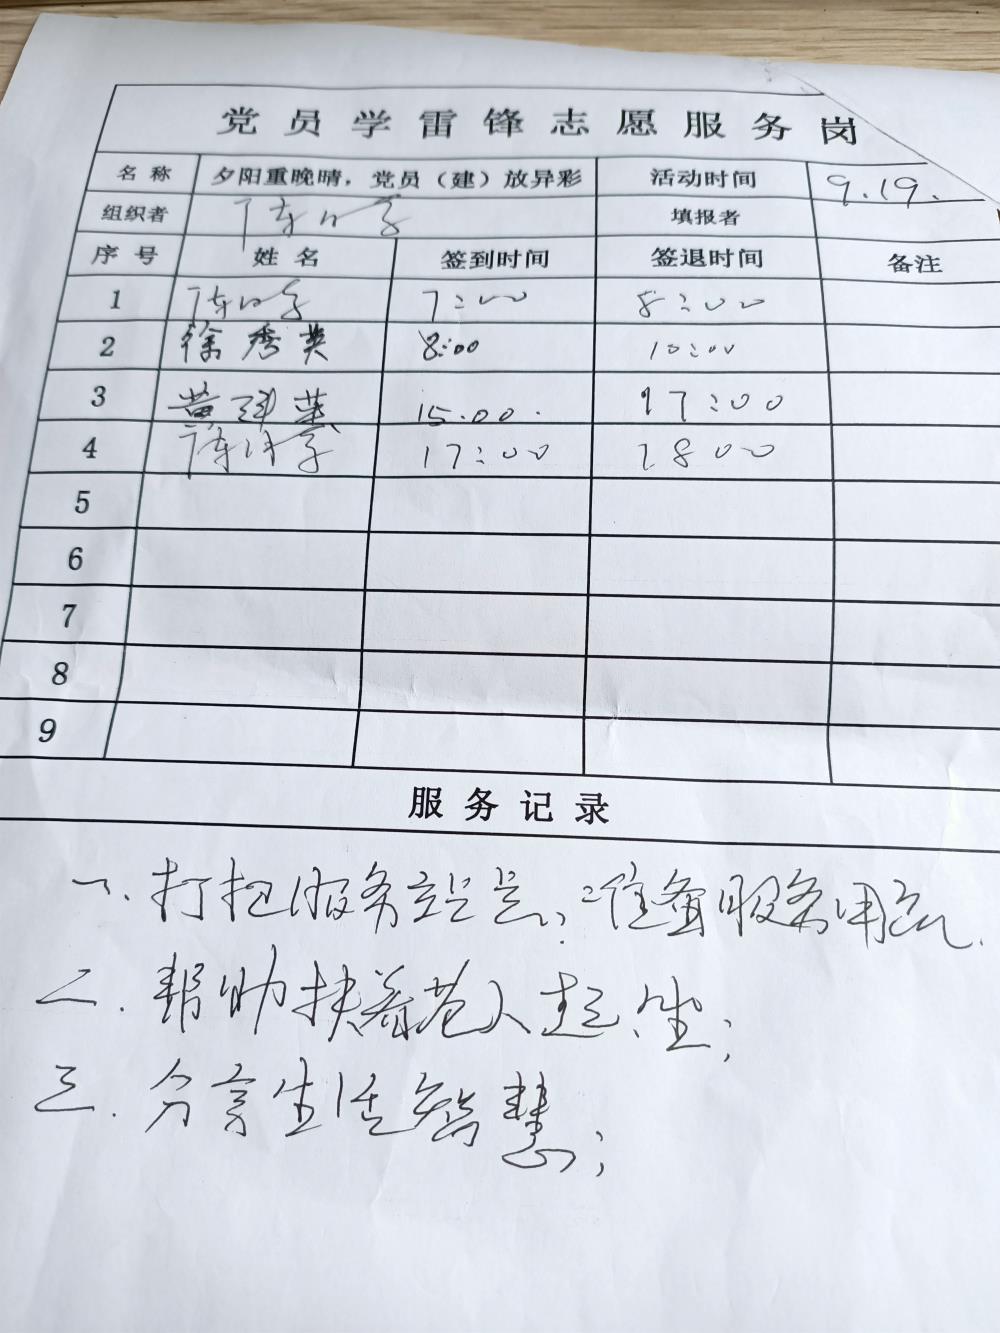 党员学雷锋志愿服务岗
名称 夕阳重晚晴，党员（建）放异彩 活动时间 9.19.
组织者 填报者
序号 姓名 签到时间 签退时间 备注
1 7:00 8:00
2 徐秀英 8:00 10:00
3 黄 英 15:00. 17:00
4 17:00 18 00
5
6
7
8
9
服务记录
一、打扫服务站点；准备服务用
二．帮助扶着老人起、坐；
三．分享生活智慧；